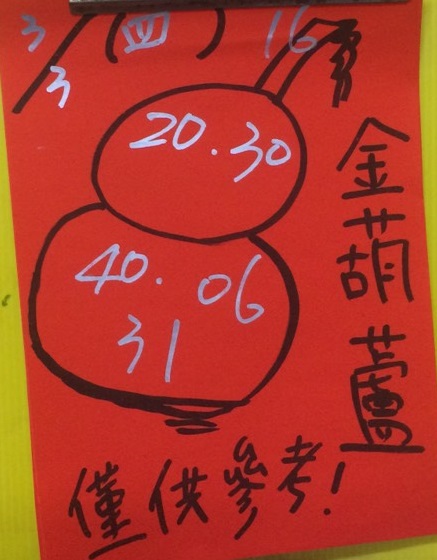 3/3 (四) 16
20.30
40. 06
31
金葫蘆
僅供參考!